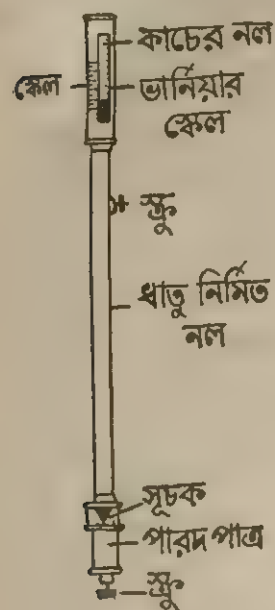 কাচের নল
স্কেল
ভার্নিয়ার
স্কেল
স্ক্রু
ধাতু নির্মিত
নল
সূচক
পারদ পাত্র
স্ক্রু